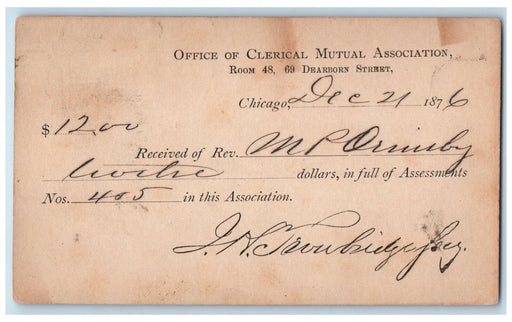 OFFICE OF CLERICAL MUTUAL ASSOCIATION,
ROOM 48, 69 DEARBORN STREET,
Chicago, Dec 21 1876
$12.00
Received of Rev. M P Ormsby
twelve dollars, in full of Assessments
Nos. 405 in this Association.
J. H. Trowbridge Secy.